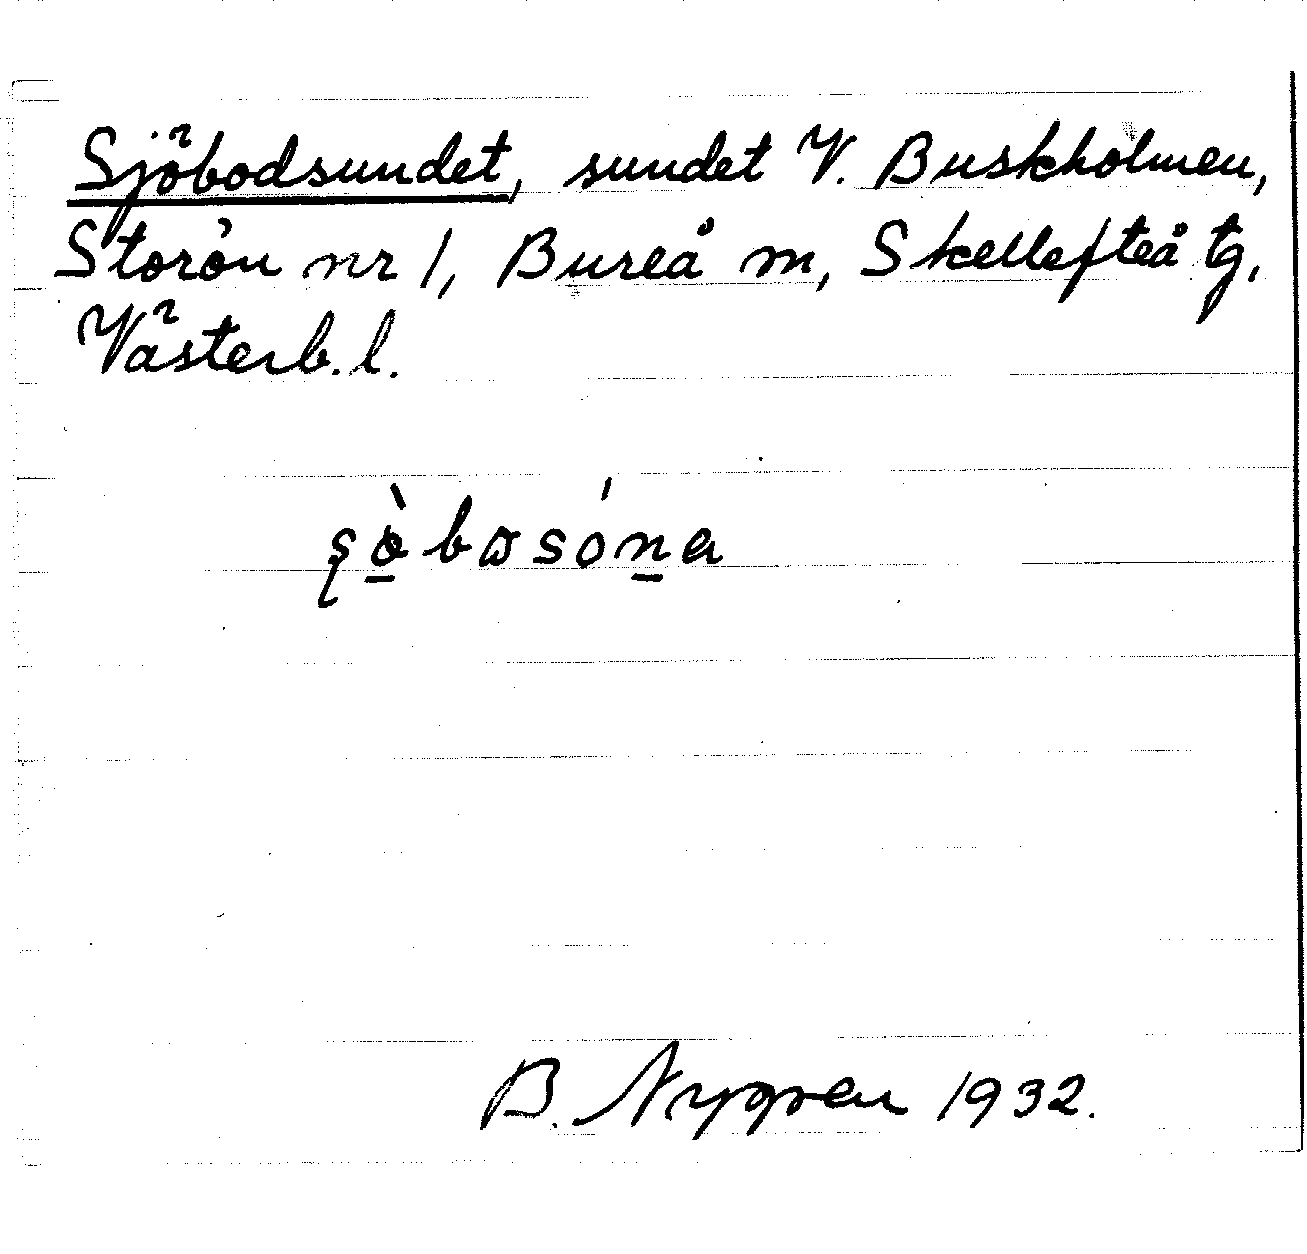 Sjöbodsundet, sundet V. Buskholmen,
Storön nr 1, Bureå m, Skellefteå tg,
Västerb. l.
B. Nygren 1932.